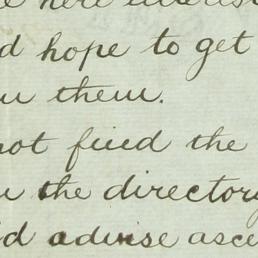 e here
d hope to get
u them.
not find the
u the directory
d advise asce